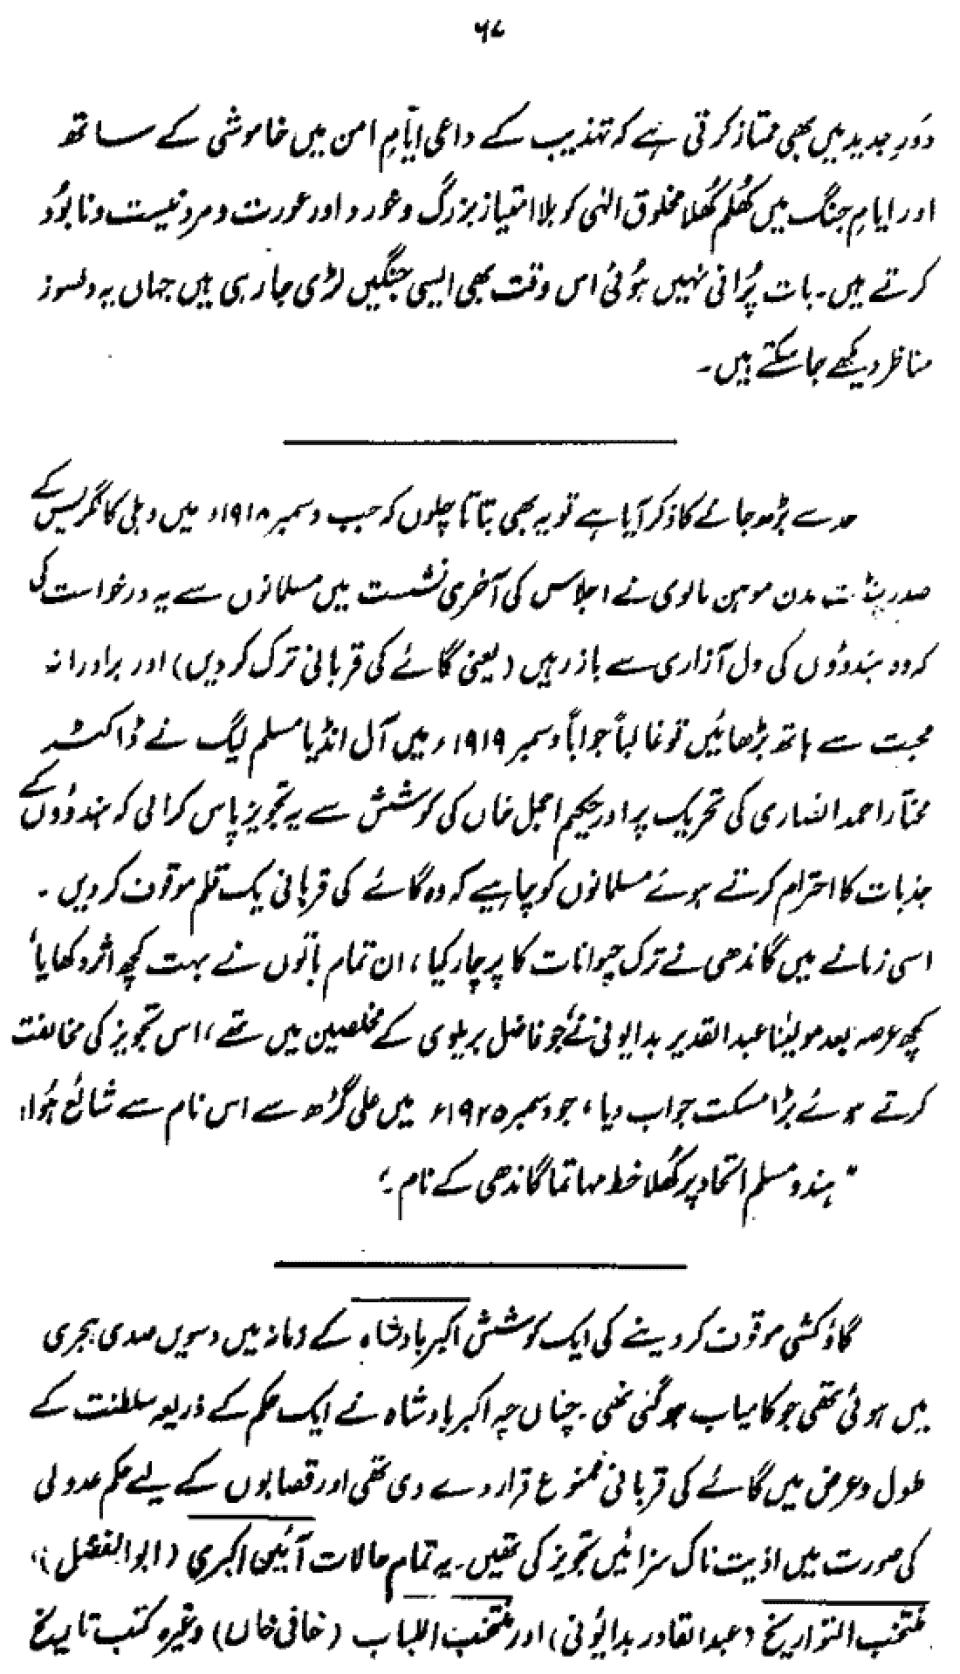 ۶۷
دَورِ جدید میں بھی ممتاز کرتی ہے کہ تہذیب کے داعی ایّامِ امن میں خاموشی کے ساتھ
اور ایامِ جنگ میں کھُلم کھُلا مخلوق الٰہی کو بلا امتیاز بزرگ و خورد اور عورت و مرد نیست و نابوُد
کرتے ہیں۔ بات پُرانی نہیں ہوُئی اس وقت بھی ایسی جنگیں لڑی جارہی ہیں جہاں یہ دلسوز
مناظر دیکھے جاسکتے ہیں۔
حد سے بڑھ جانے کا ذکر آیا ہے تو یہ بھی بتاتا چلوں کہ جب دسمبر ۱۹۱۸ء میں دہلی کانگریس کے
صدر پنڈت مدن موہن مالوی نے اجلاس کی آخری نشست میں مسلمانوں سے یہ درخواست کی
کہ وہ ہندوؤں کی دل آزاری سے باز رہیں (یعنی گائے کی قربانی ترک کردیں) اور برادرانہ
محبت سے ہاتھ بڑھائیں تو غالباً جواباً دسمبر ۱۹۱۹ء میں آل انڈیا مسلم لیگ نے ڈاکٹر
مختار احمد انصاری کی تحریک پر اور حکیم اجمل خاں کی کوشش سے یہ تجویز پاس کرالی کہ ہندوؤں کے
جذبات کا احترام کرتے ہوئے مسلمانوں کو چاہیے کہ وہ گائے کی قربانی یک قلم موقوف کردیں۔
اسی زمانے میں گاندھی نے ترک حیوانات کا پرچار کیا، ان تمام باتوں نے بہت کچھ اثر دکھایا،
کچھ عرصہ بعد مولیٰنا عبدالقدیر بدایونی نے جو فاضل بریلوی کے مخلصین میں تھے، اس تجویز کی مخالفت
کرتے ہوئے بڑا مسکت جواب دیا، جو دسمبر ۱۹۲۵ء میں علی گڑھ سے اس نام سے شائع ہُوا:
"ہندو مسلم اتحاد پر کھُلا خط مہاتما گاندھی کے نام۔"
گاؤکشی موقوف کردینے کی ایک کوشش اکبر بادشاہ کے زمانہ میں دسویں صدی ہجری
میں ہوئی تھی جو کامیاب ہوگئی تھی۔ چناں چہ اکبر بادشاہ نے ایک حکم کے ذریعہ سلطنت کے
طول و عرض میں گائے کی قربانی ممنوع قرار دے دی تھی اور قصابوں کے لیے حکم عدولی
کی صورت میں اذیت ناک سزائیں تجویز کی تھیں۔ یہ تمام حالات آئین اکبری (ابوالفضل)،
منتخب التواریخ (عبدالقادر بدایُونی) اور منتخب اللباب (خافی خاں) وغیرہ کتب تاریخ